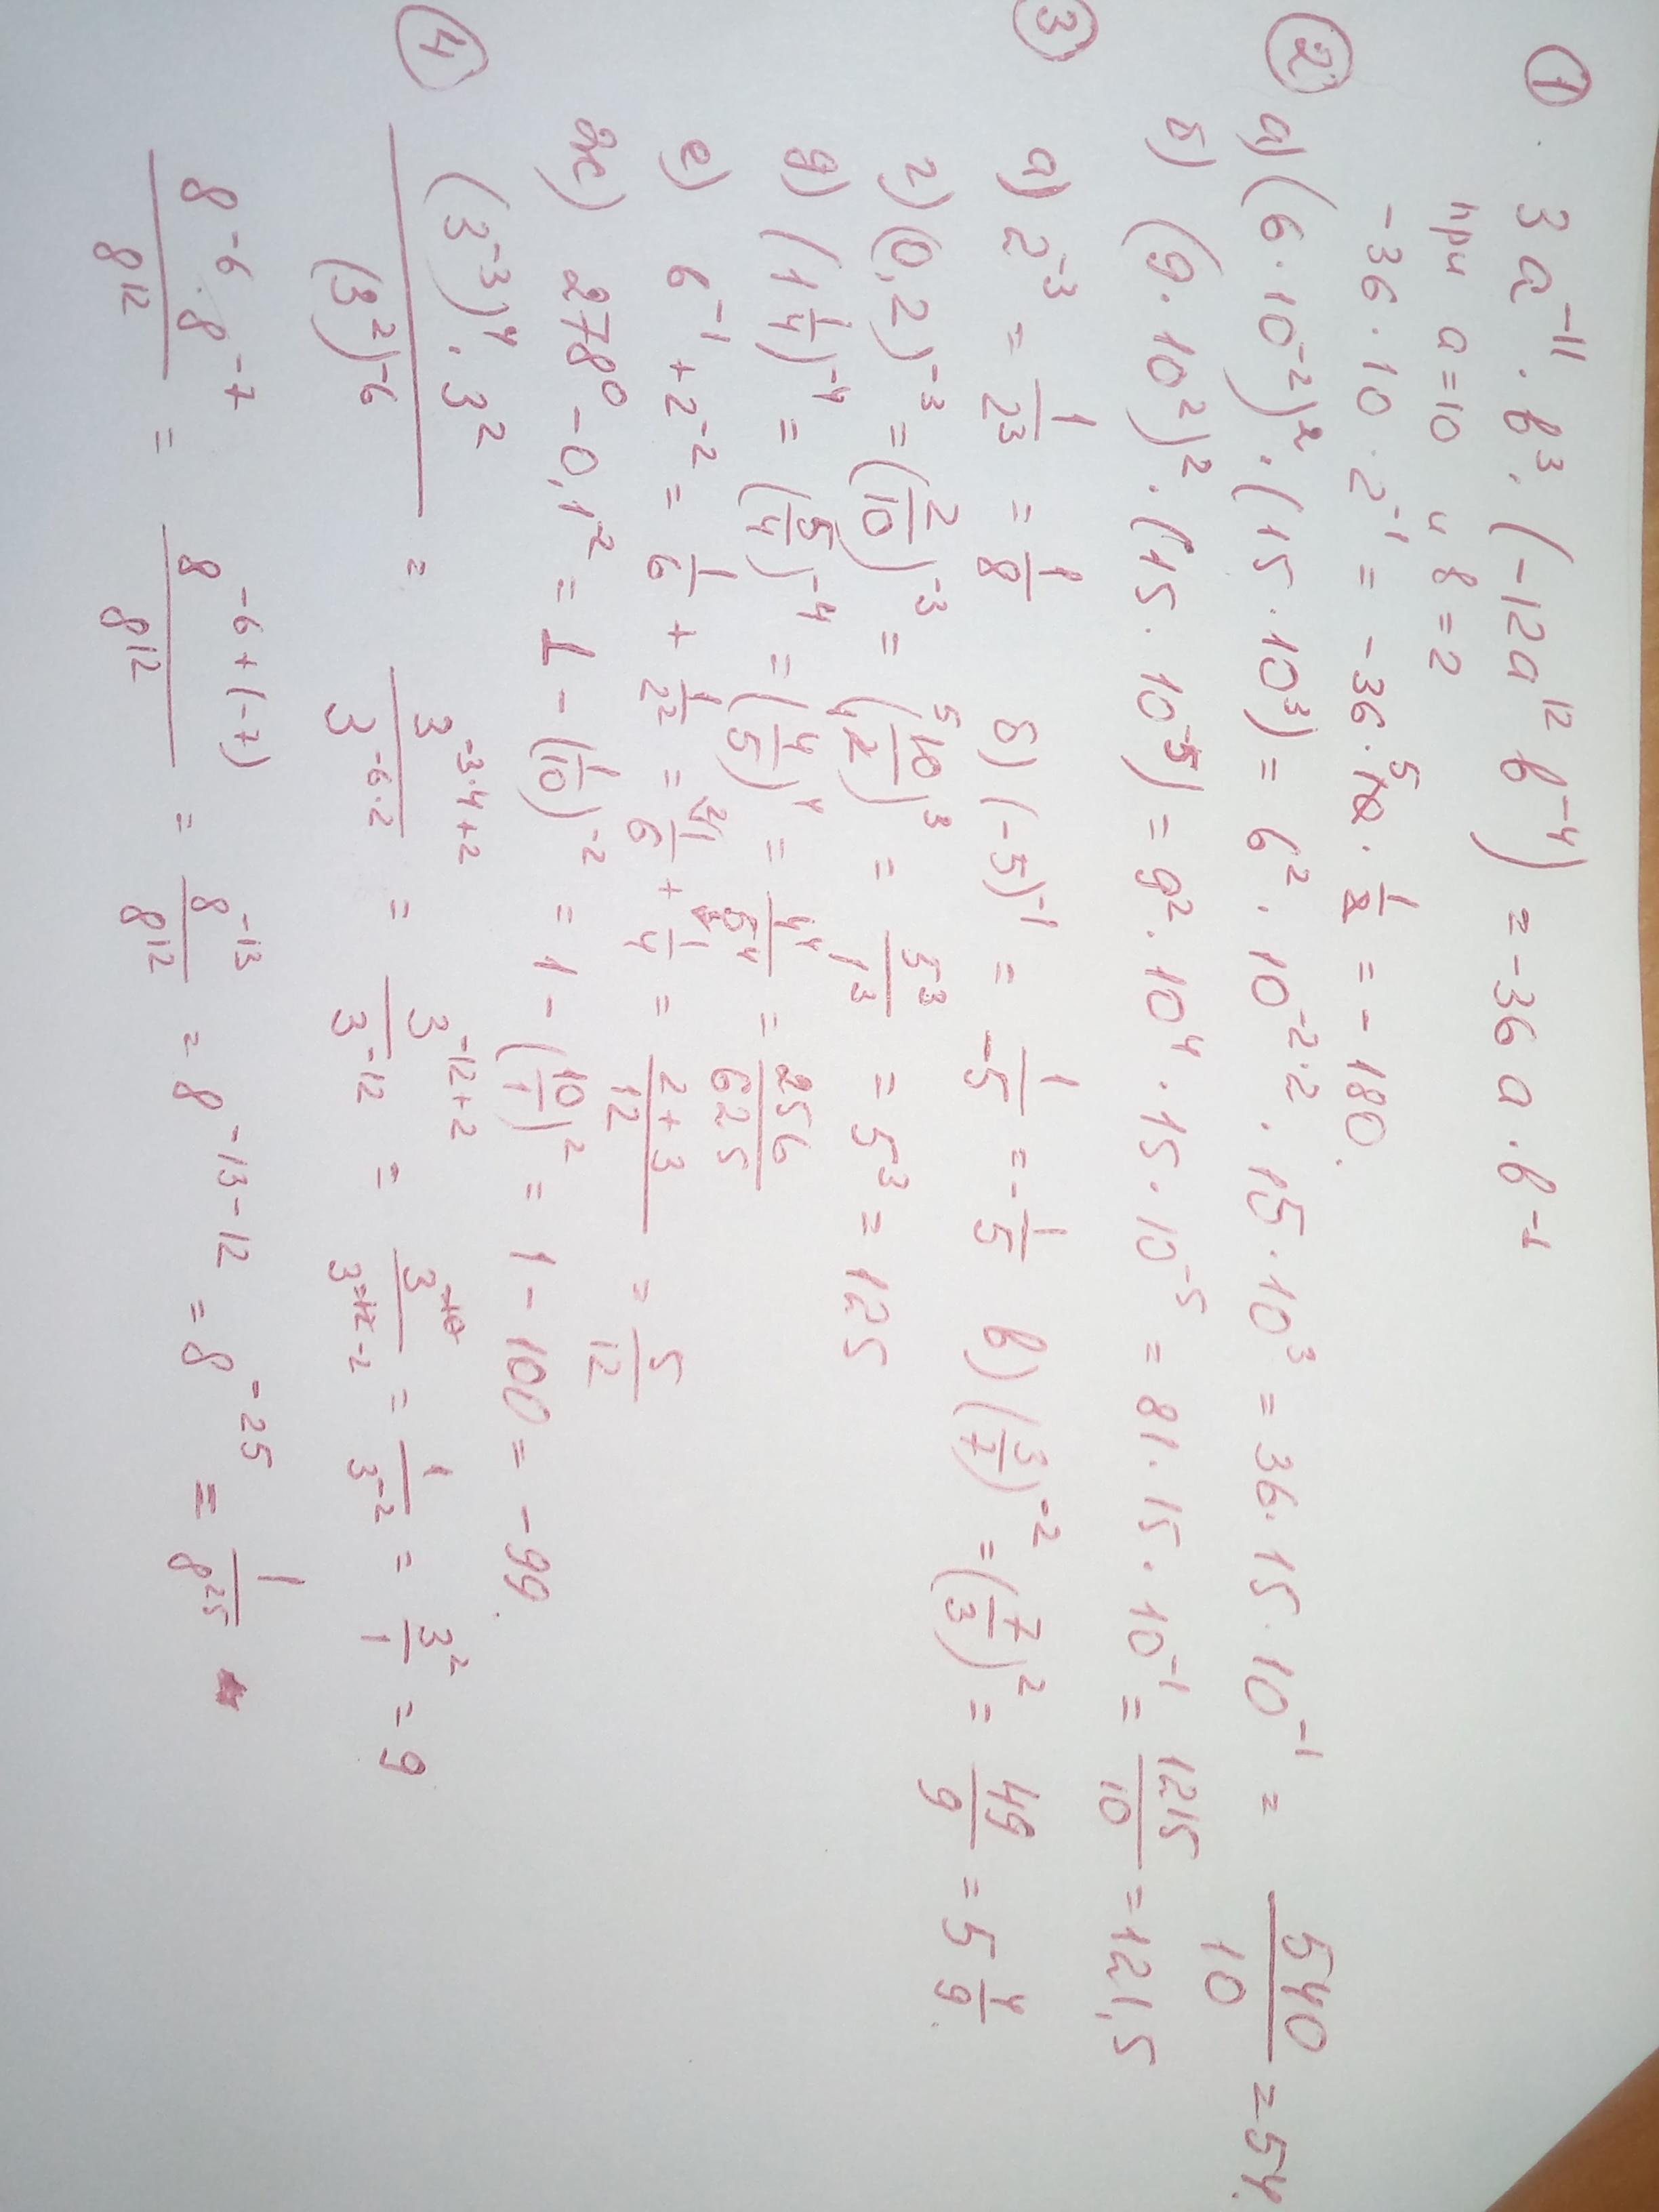 ① . 3a⁻¹¹ · b³ · (-12a¹² b⁻⁴) = -36 a · b⁻¹
при a=10 и b=2
-36 · 10 · 2⁻¹ = -36 · 10 5 · 1/2 = -180.
② а) (6 · 10⁻²)² · (15 · 10³) = 6² · 10⁻²·² · 15 · 10³ = 36 · 15 · 10⁻¹ = 540/10 = 54.
б) (9 · 10²)² · (15 · 10⁻⁵) = 9² · 10⁴ · 15 · 10⁻⁵ = 81 · 15 · 10⁻¹ = 1215/10 = 121,5
③ а) 2⁻³ = 1/2³ = 1/8 б) (-5)⁻¹ = 1/-5 = -1/5 в) (3/7)⁻² = (7/3)² = 49/9 = 5 4/9.
г) (0,2)⁻³ = (2/10)⁻³ = (5 10/2)³ = 5³/1³ = 5³ = 125
д) (1 1/4)⁻⁴ = (5/4)⁻⁴ = (4/5)⁴ = 4⁴/5⁴ = 256/625
е) 6⁻¹ + 2⁻² = 1/6 + 1/2² = 2 1/6 + 3 1/4 = 2+3/12 = 5/12
ж) 278⁰ - 0,1⁻² = 1 - (1/10)⁻² = 1 - (10/1)² = 1 - 100 = -99.
④ (3⁻³)⁴ · 3²/(3²)⁻⁶ = 3⁻³·⁴⁺²/3⁻⁶·² = 3⁻¹²⁺²/3⁻¹² = 3⁻¹⁰/3⁻¹² ⁻² = 1/3⁻² = 3²/1 = 9
8⁻⁶ · 8⁻⁷/8¹² = 8⁻⁶⁺⁽⁻⁷⁾/8¹² = 8⁻¹³/8¹² = 8⁻¹³⁻¹² = 8⁻²⁵ = 1/8²⁵